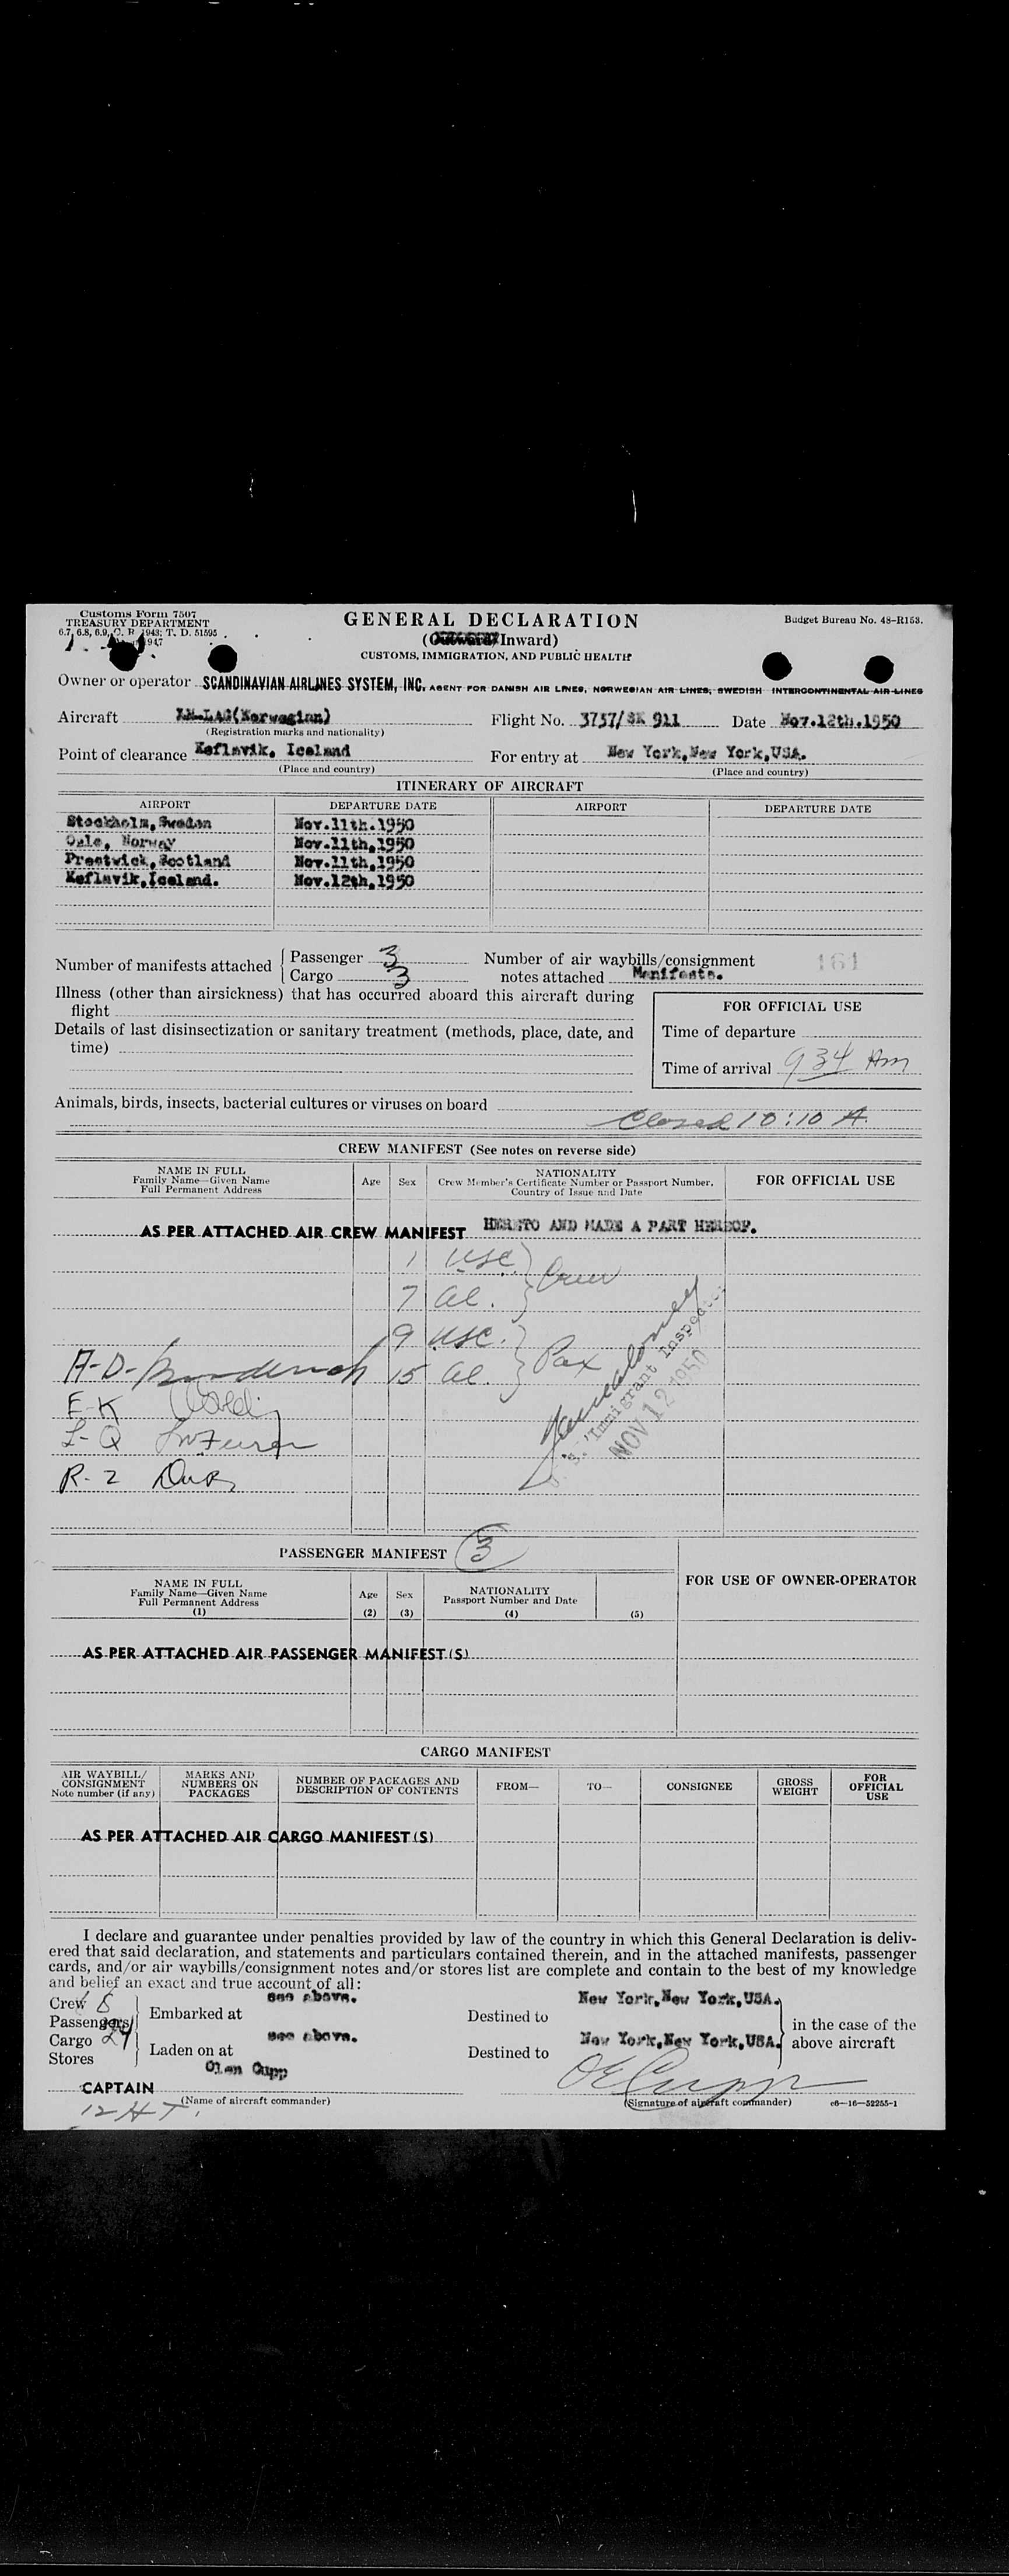 Customs Form 7507
TREASURY DEPARTMENT
6.7, 6.8, 6.9, C. R. 1943; T. D. 51595
1947
GENERAL DECLARATION
(Outward/Inward)
CUSTOMS, IMMIGRATION, AND PUBLIC HEALTH
Budget Bureau No. 48-R153.
Owner or operator SCANDINAVIAN AIRLINES SYSTEM, INC. AGENT FOR DANISH AIR LINES, NORWEGIAN AIR LINES, SWEDISH INTERCONTINENTAL AIR LINES
Aircraft (Norwegian) Flight No. 3737/SK 911 Date Nov.12th.1950
(Registration marks and nationality)
Point of clearance Keflavik, Iceland For entry at New York,New York,USA.
(Place and country) (Place and country)
ITINERARY OF AIRCRAFT
AIRPORT DEPARTURE DATE AIRPORT DEPARTURE DATE
Stockholm,Sweden Nov.11th.1950
Oslo, Norway Nov.11th,1950
Prestwick,Scotland Nov.11th,1950
Keflavik,Iceland. Nov.12th,1950
Number of manifests attached { Passenger 3 Number of air waybills/consignment 161
Cargo 3 notes attached Manifests.
Illness (other than airsickness) that has occurred aboard this aircraft during
flight
Details of last disinsectization or sanitary treatment (methods, place, date, and
time)
FOR OFFICIAL USE
Time of departure
Time of arrival 934 Am
Animals, birds, insects, bacterial cultures or viruses on board
Closed 10:10 A.
CREW MANIFEST (See notes on reverse side)
NAME IN FULL
Family Name—Given Name
Full Permanent Address
Age Sex
NATIONALITY
Crew Member's Certificate Number or Passport Number,
Country of Issue and Date
FOR OFFICIAL USE
AS PER ATTACHED AIR CREW MANIFEST HERETO AND MADE A PART HEREOF.
1 USC. } Crew
7 al.
9 USC. } Pax
A-D- 15 al.
E-K
L-Q
R-Z
U.S. Immigrant Inspector
NOV 12 1950
PASSENGER MANIFEST 3
NAME IN FULL
Family Name—Given Name
Full Permanent Address
(1)
Age
(2)
Sex
(3)
NATIONALITY
Passport Number and Date
(4)
(5)
FOR USE OF OWNER-OPERATOR
AS PER ATTACHED AIR PASSENGER MANIFEST(S)
CARGO MANIFEST
AIR WAYBILL/
CONSIGNMENT
Note number (if any)
MARKS AND
NUMBERS ON
PACKAGES
NUMBER OF PACKAGES AND
DESCRIPTION OF CONTENTS
FROM—
TO—
CONSIGNEE
GROSS
WEIGHT
FOR
OFFICIAL
USE
AS PER ATTACHED AIR CARGO MANIFEST(S)
I declare and guarantee under penalties provided by law of the country in which this General Declaration is deliv-
ered that said declaration, and statements and particulars contained therein, and in the attached manifests, passenger
cards, and/or air waybills/consignment notes and/or stores list are complete and contain to the best of my knowledge
and belief an exact and true account of all:
Crew 8
Passengers 24
Cargo
Stores
Embarked at see above. Destined to New York,New York,USA.
Laden on at see above. Destined to New York,New York,USA.
in the case of the
above aircraft
Olen Cupp
CAPTAIN
(Name of aircraft commander)
OE Cupp
(Signature of aircraft commander)
c6—16—52255-1
12 H T.